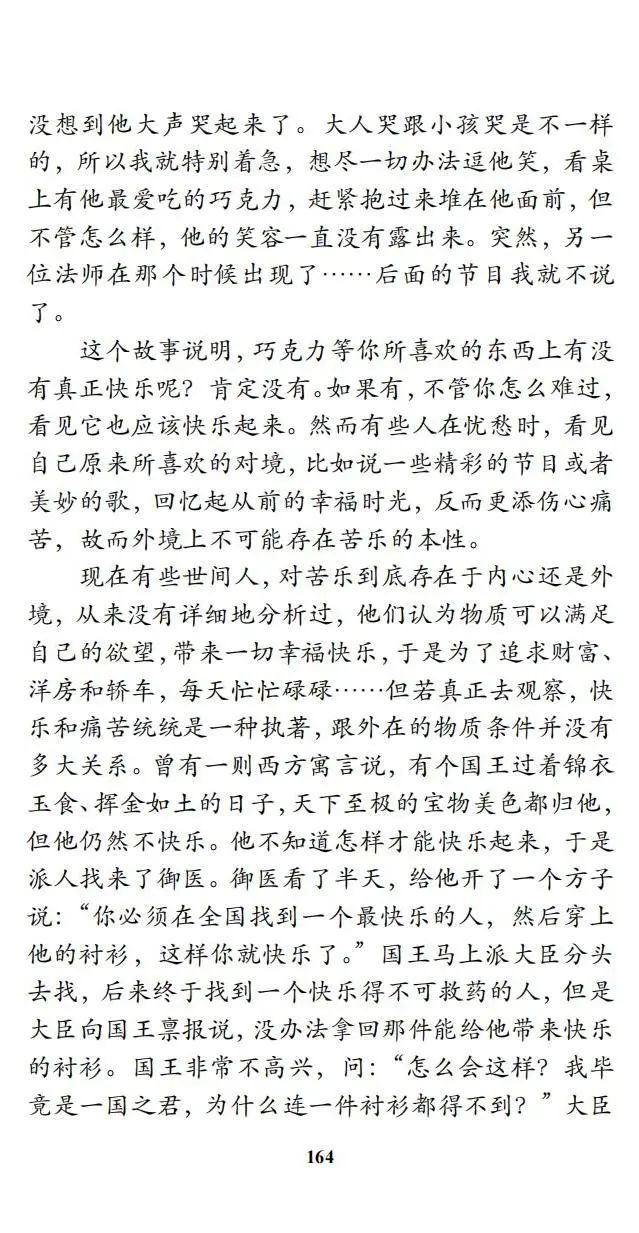 没想到他大声哭起来了。大人哭跟小孩哭是不一样
的，所以我就特别着急，想尽一切办法逗他笑，看桌
上有他最爱吃的巧克力，赶紧抱过来堆在他面前，但
不管怎么样，他的笑容一直没有露出来。突然，另一
位法师在那个时候出现了……后面的节目我就不说
了。
这个故事说明，巧克力等你所喜欢的东西上有没
有真正快乐呢？肯定没有。如果有，不管你怎么难过，
看见它也应该快乐起来。然而有些人在忧愁时，看见
自己原来所喜欢的对境，比如说一些精彩的节目或者
美妙的歌，回忆起从前的幸福时光，反而更添伤心痛
苦，故而外境上不可能存在苦乐的本性。
现在有些世间人，对苦乐到底存在于内心还是外
境，从来没有详细地分析过，他们认为物质可以满足
自己的欲望，带来一切幸福快乐，于是为了追求财富、
洋房和轿车，每天忙忙碌碌……但若真正去观察，快
乐和痛苦统统是一种执著，跟外在的物质条件并没有
多大关系。曾有一则西方寓言说，有个国王过着锦衣
玉食、挥金如土的日子，天下至极的宝物美色都归他，
但他仍然不快乐。他不知道怎样才能快乐起来，于是
派人找来了御医。御医看了半天，给他开了一个方子
说：“你必须在全国找到一个最快乐的人，然后穿上
他的衬衫，这样你就快乐了。”国王马上派大臣分头
去找，后来终于找到一个快乐得不可救药的人，但是
大臣向国王禀报说，没办法拿回那件能给他带来快乐
的衬衫。国王非常不高兴，问：“怎么会这样？我毕
竟是一国之君，为什么连一件衬衫都得不到？”大臣
164